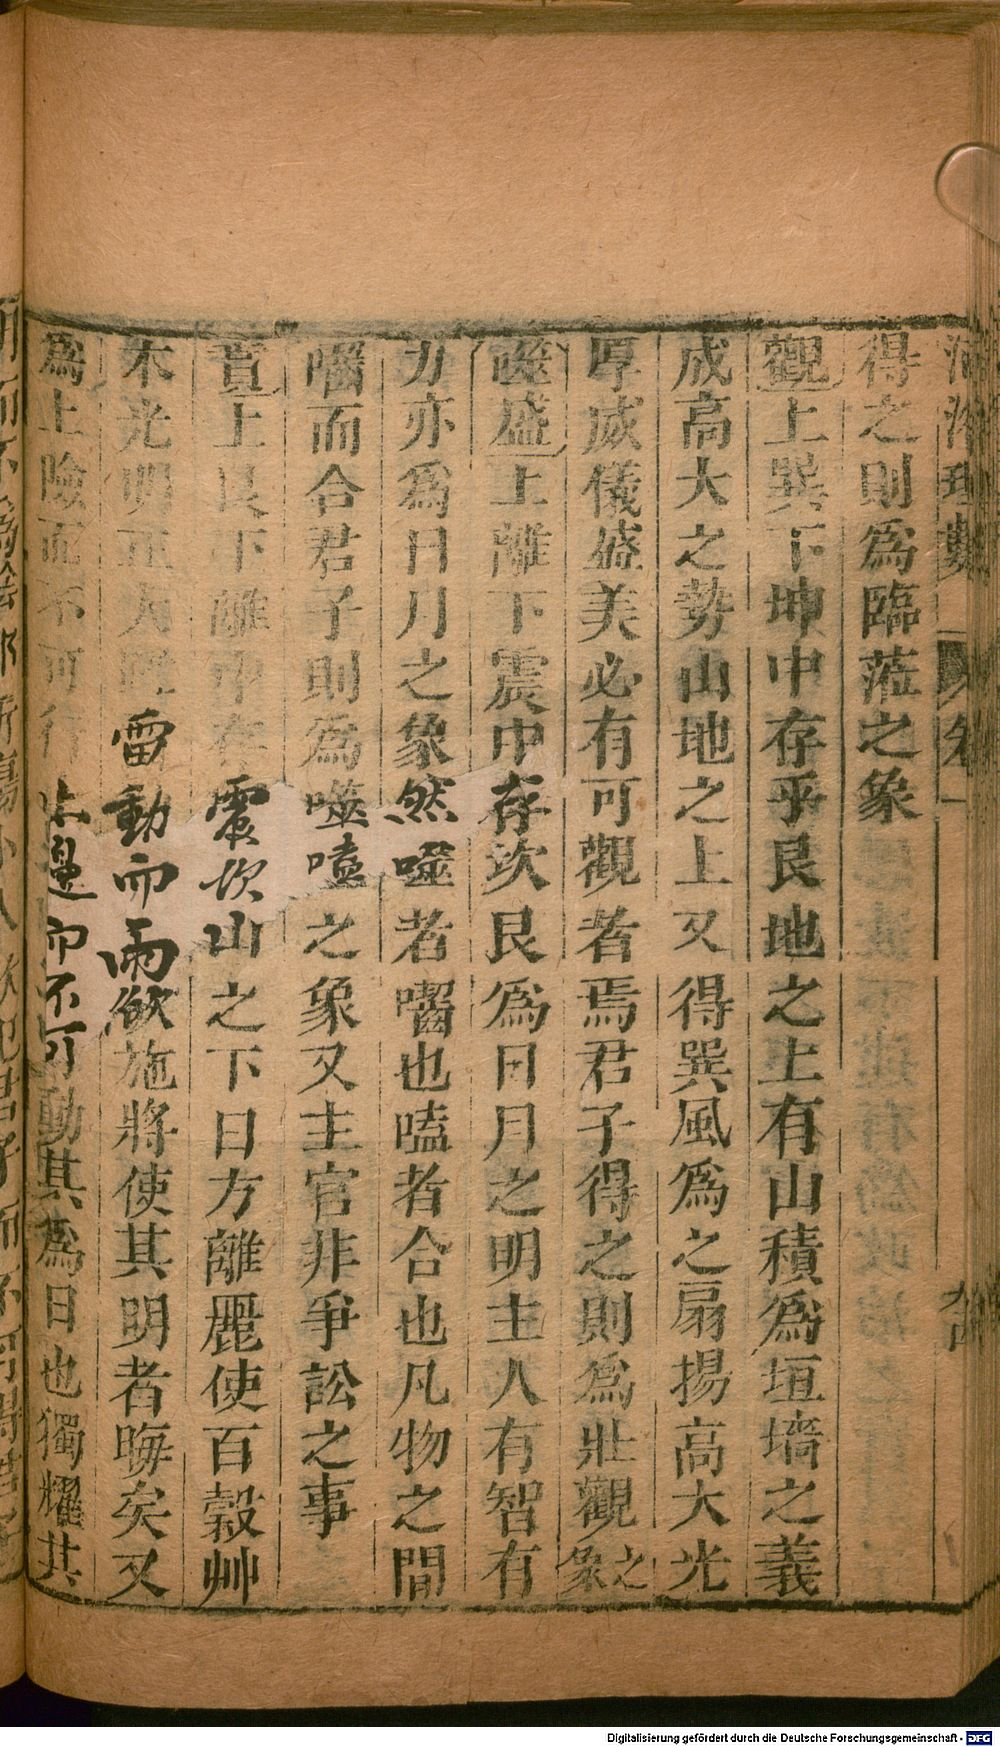 河洛理數 卷一
得之則爲臨蒞之象
觀上巽下坤中存乎艮地之上有山積爲垣墻之義
成高大之勢山地之上又得巽風爲之扇揚高大光
厚威儀盛美必有可觀者焉君子得之則爲壯觀之象
噬盍上離下震中存坎艮爲日月之明主人有智有
力亦爲日月之象然噬者嚙也嗑者合也凡物之間
嚙而合君子則爲噬嗑之象又主官非爭訟之事
賁上艮下離中存震坎山之下日方離麗使百穀艸
木光明正大雷動而雨欲施將使其明者晦矣又
爲上險而不可行止邊而不可動其爲日也獨耀其
Digitalisierung gefördert durch die Deutsche Forschungsgemeinschaft - DFG